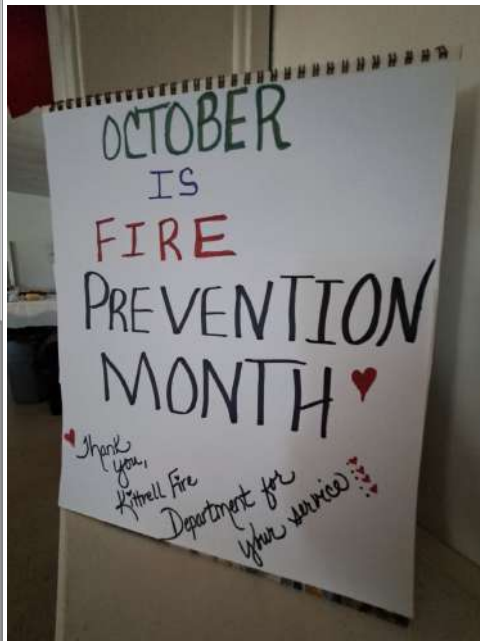 OCTOBER
IS
FIRE
PREVENTION
MONTH
Thank
you,
Kittrell Fire
Department for
your service